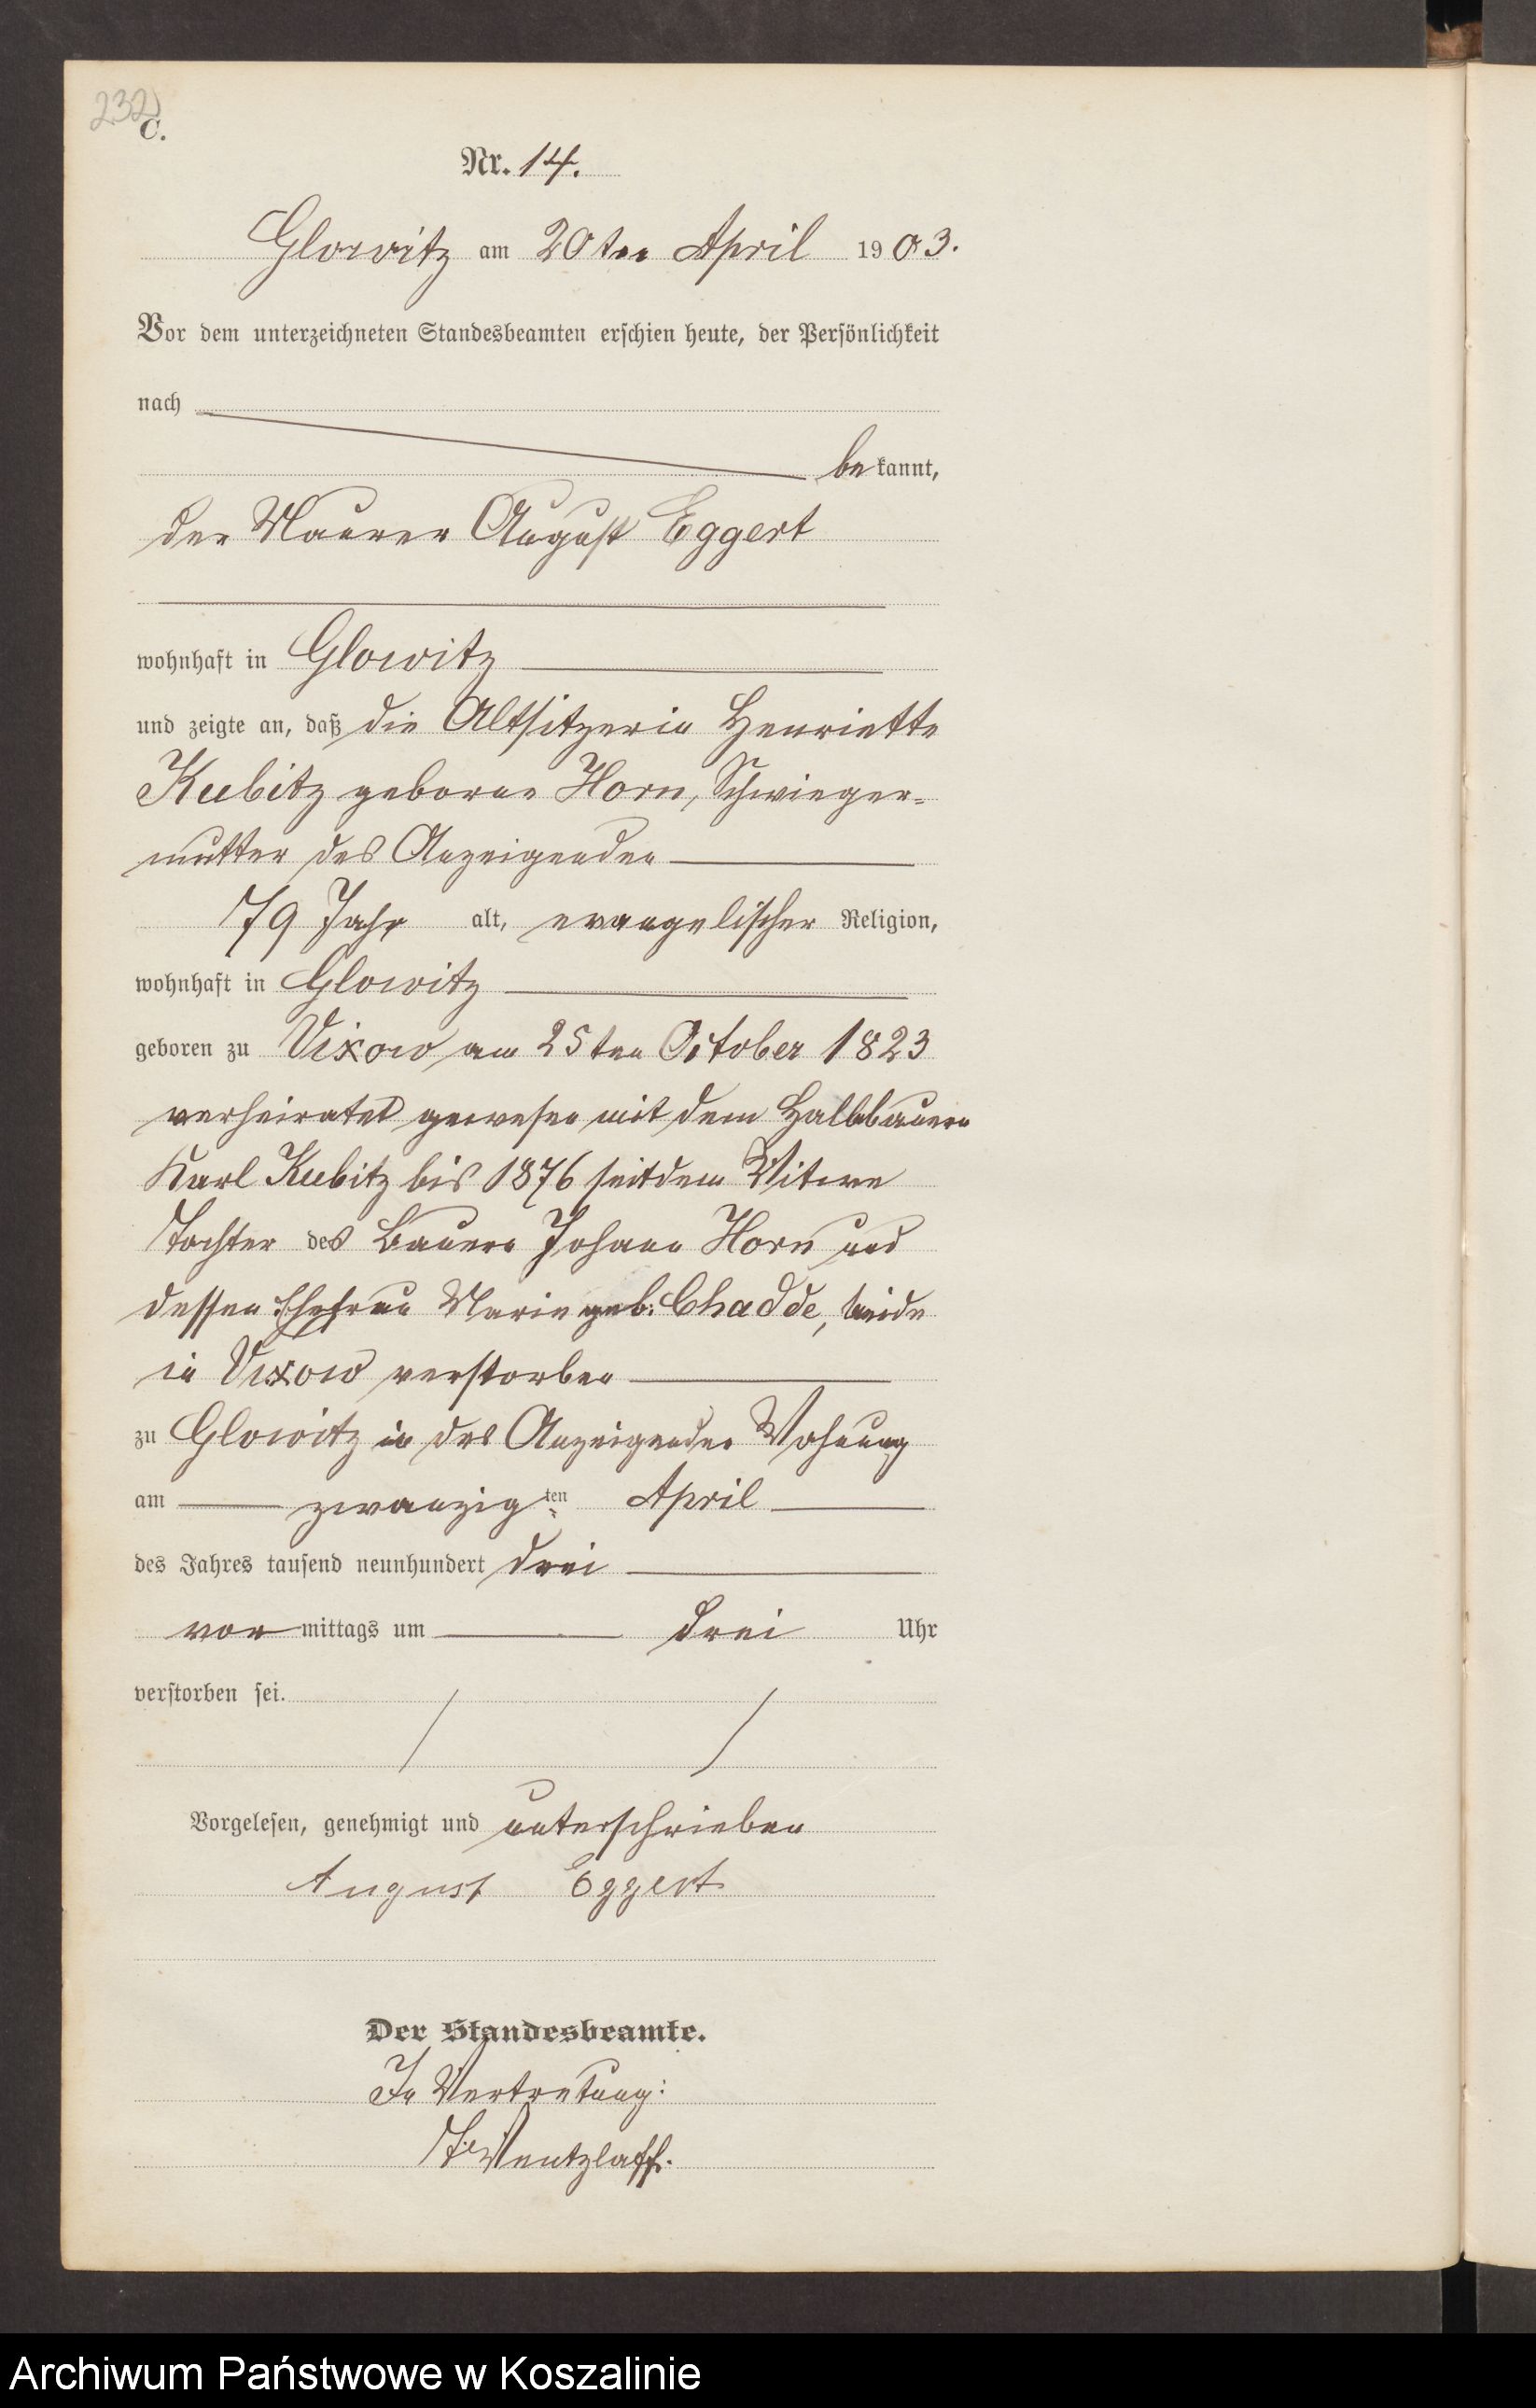 232
C.
Nr. 14.
Glowitz am 20ten April 1903.
Vor dem unterzeichneten Standesbeamten erschien heute, der Persönlichkeit
nach
bekannt,
der Maurer August Eggert
wohnhaft in Glowitz
und zeigte an, daß die Altsitzerin Henriette
Kubitz geborne Horn, Schwieger-
mutter des Anzeigenden
79 Jahr alt, evangelischer Religion,
wohnhaft in Glowitz
geboren zu Vixow am 25ten October 1823
verheiratet gewesen mit dem Halbbauern
Karl Kubitz bis 1876 seitdem Witwe
Tochter des Bauern Johann Horn und
dessen Ehefrau Marie geb. Chadde, beide
in Vixow verstorben
zu Glowitz in des Anzeigenden Wohnung
am zwanzigten April
des Jahres tausend neunhundert drei
vormittags um drei Uhr
verstorben sei.
Vorgelesen, genehmigt und unterschrieben
August Eggert
Der Standesbeamte.
In Vertretung:
Wentzlaff.
Archiwum Państwowe w Koszalinie